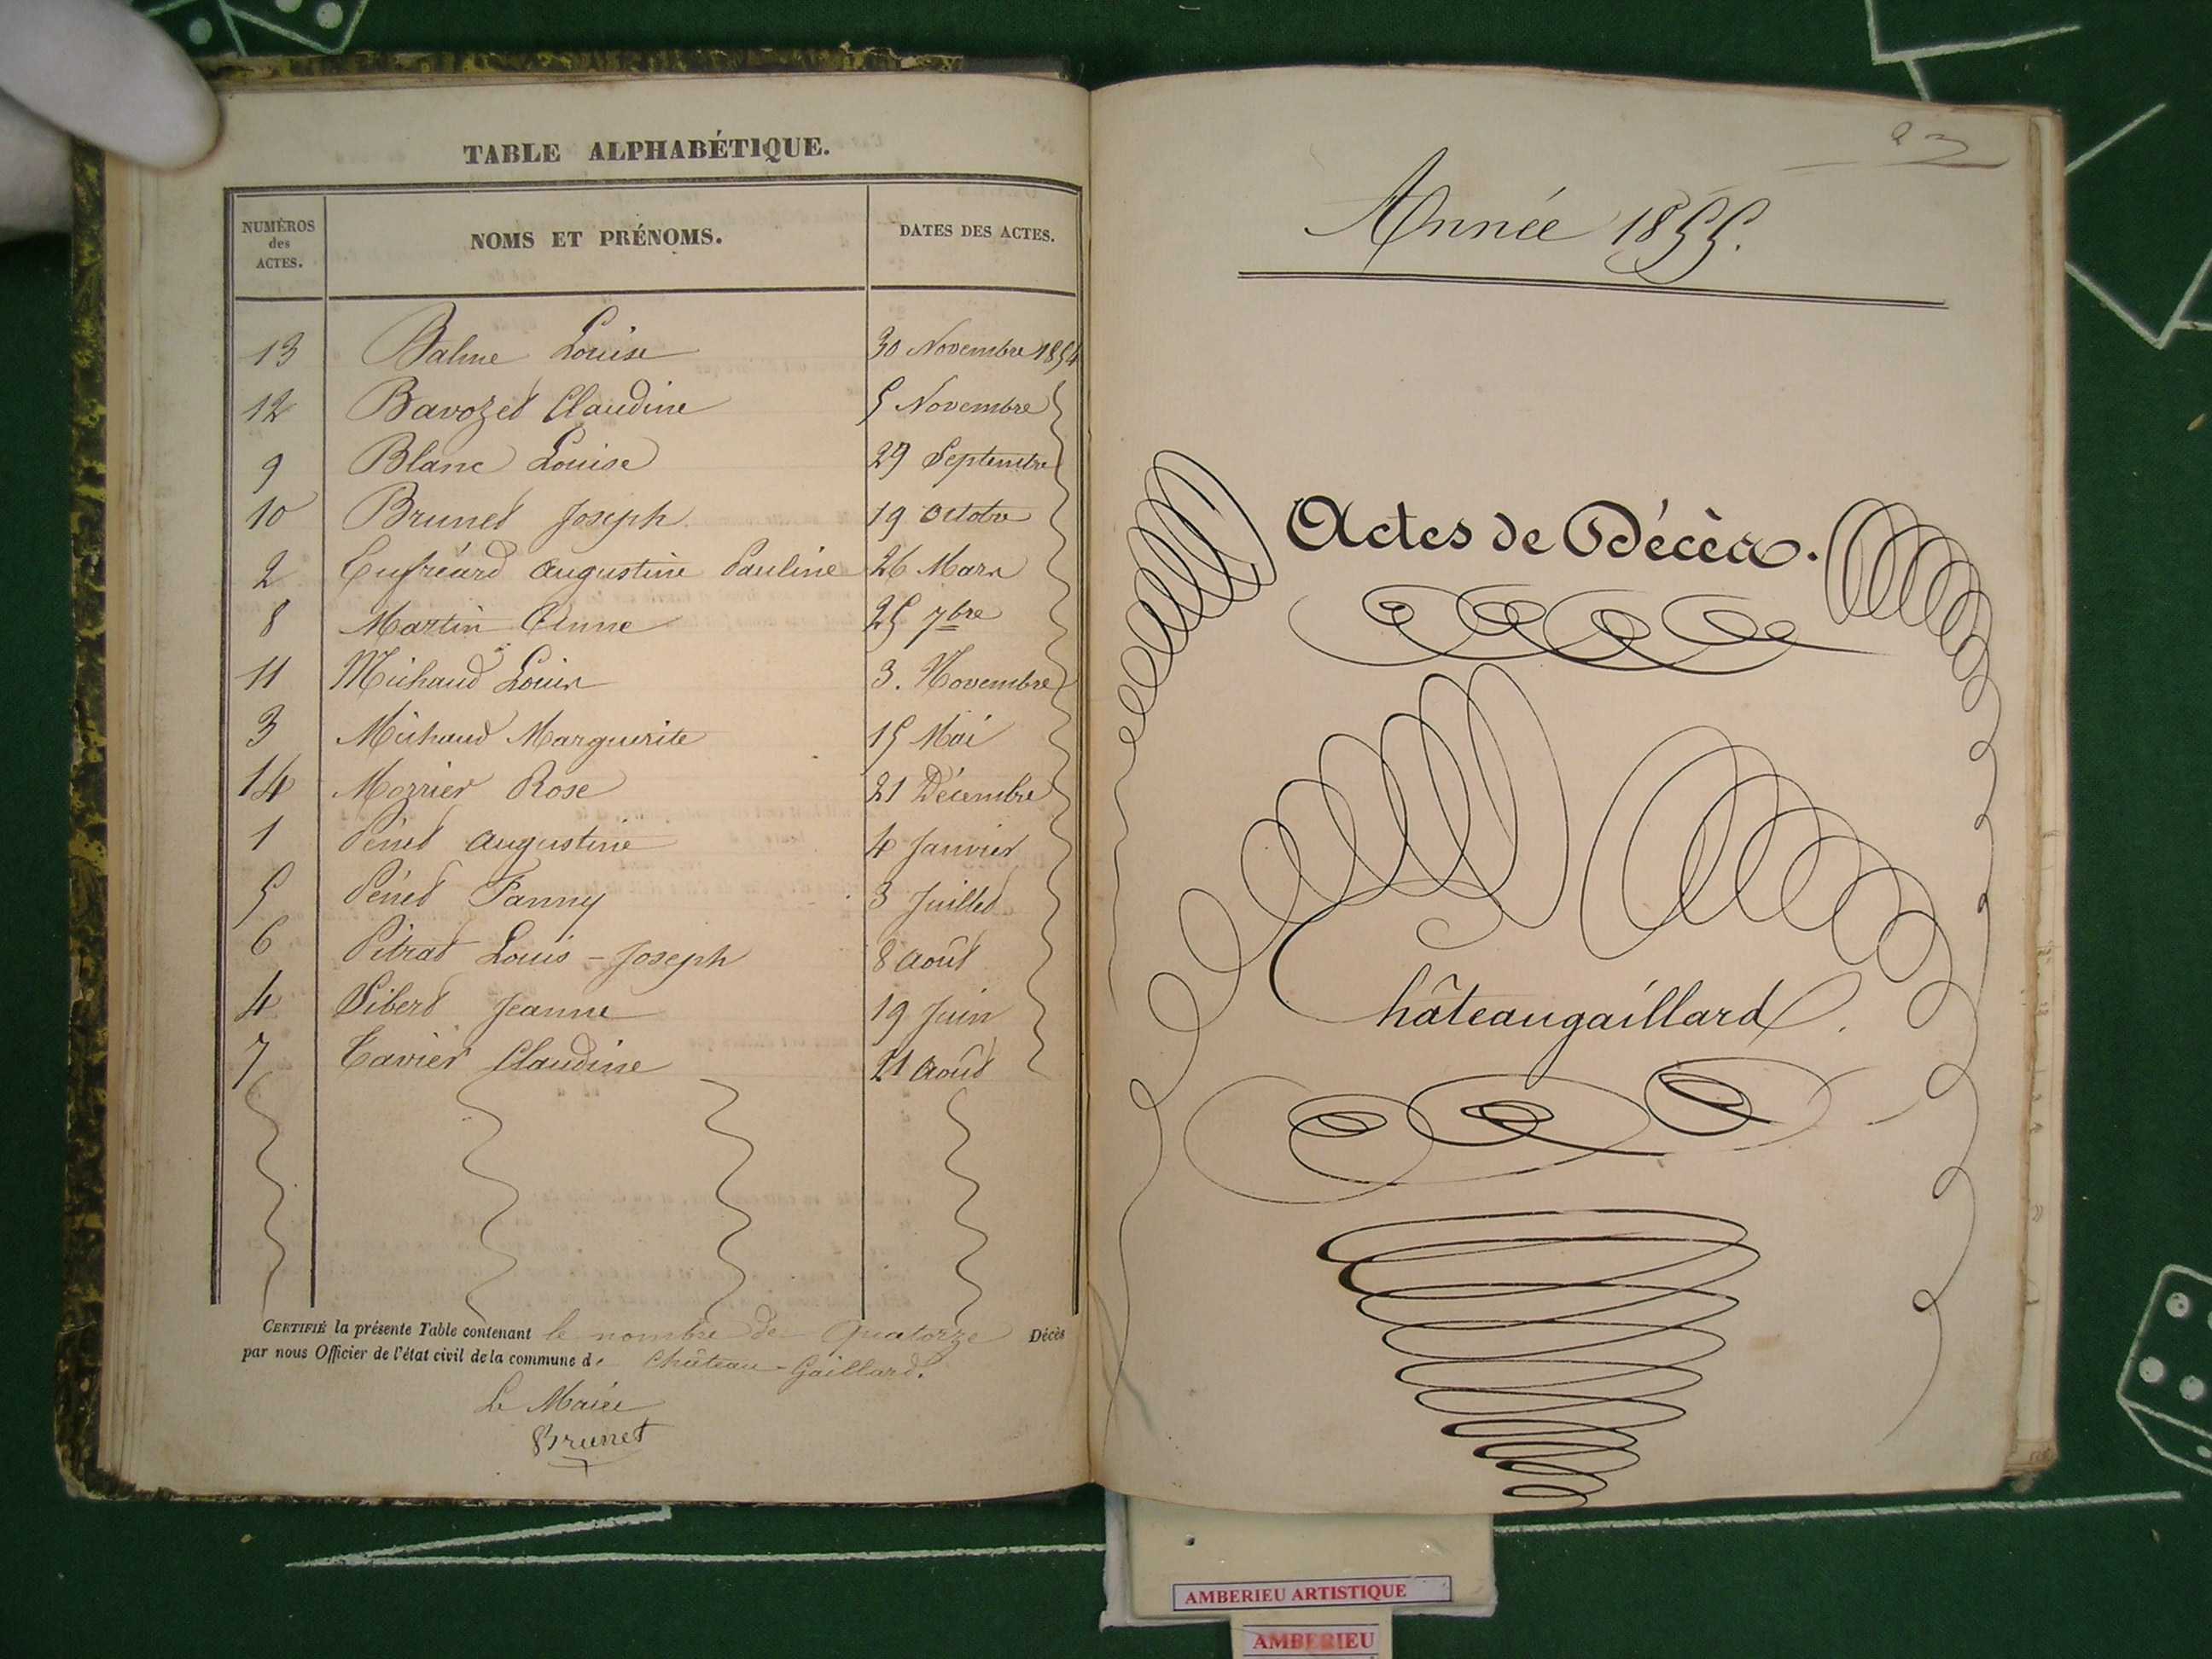 TABLE ALPHABÉTIQUE.
NUMÉROS des ACTES. NOMS ET PRÉNOMS. DATES DES ACTES.
13 Balme Louise 30 Novembre 1854
12 Bavozet Claudine 5 Novembre
9 Blanc Louise 29 Septembre
10 Brunet Joseph 19 Octobre
2 Cufréard Augustine Pauline 26 Mars
8 Martin Anne 25 7bre
11 Michaud Louis 3. Novembre
3 Michaud Marguerite 15 Mai
14 Morrier Rose 21 Décembre
1 Pénet Augustine 4 Janvier
5 Pénet Fanny 3 Juillet
6 Pitrat Louis-Joseph 8 Août
4 Sibert Jeanne 19 Juin
7 Tavier Claudine 21 Août
CERTIFIÉ la présente Table contenant le nombre de Quatorze Décès
par nous Officier de l'état civil de la commune de Château-Gaillard.
Le Maire
Brunet
Année 1855.
Actes de Décès.
Châteaugaillard.
AMBERIEU ARTISTIQUE
AMBERIEU